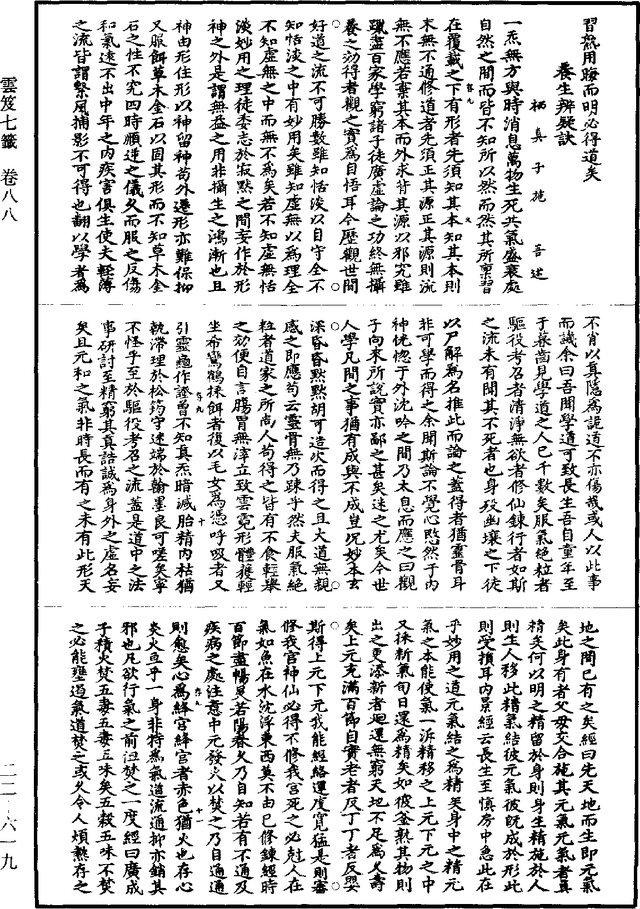 習熟用睡而明必得道矣
養生辨疑訣
栖真子施 吾述
一炁無方與時消息萬物生死共氣盛衰處
自然之間而皆不知所以然而然其所稟習
在覆載之下有形者先須知其本知其本則
末無不通修道者先須正其源正其源則流
無不應若棄其本而外求背其源以邪究雖
躐盡百家學窮諸子徒廣虛論之功終無攝
養之効得者觀之實為自悟耳今歷觀世間
好道之流不可勝數雖知恬淡以自守全不
知恬淡之中有妙用矣雖知虛無以為理全
不知虛無之中而無不為矣若不知虛無恬
淡妙用之理徒委志於寂默之間妄作於形
神之外是謂無益之用非攝生之鴻漸也且
神由形住形以神留神苟外遷形亦難保抑
又服餌草木金石以固其形而不知草木金
石之性不究四時順逆之儀久而服之反傷
和氣遠不出中年之內疾害俱生使夫輕薄
之流皆謂繫風捕影不可得也翻以學者為
不肖以真隱為詭道不亦傷哉或人以此事
而譏余曰吾聞學道可致長生吾自童年至
于暮齒見學道之人已千數矣服氣絕粒者
驅役考召者清淨無欲者修仙鍊行者如斯
之流未有聞其不死者也身殁幽壤之下徒
以尸解為名推此而論之蓋得者猶靈骨耳
非可學而得之余聞斯論不覺心憨然于內
神恍惚于外沈吟之間乃太息而應之曰觀
子向來所說實亦鄙之甚矣迷之尤矣今世
人學凡間之事猶有成與不成豈況妙本玄
深昏昏默默胡可造次而得之且大道無親
感之即應苟云靈骨無乃踈乎然夫服氣絕
粒者道家之所尚人苟得之皆有不食輕舉
之効便自言腸胃無滓立致雲霓形體獲輕
坐希鸞鶴採餌者復以毛女為憑呼吸者又
引靈龜作證曾不知真炁暗減胎精內枯猶
執滯理於松筠守迷端於翰墨良可嗟矣寧
不怪乎至於驅役考召之流蓋是道中之法
事研討至精窮其真誥誠為身外之虛名妄
矣且元和之氣非時長而有之未有此形天
地之間已有之矣經曰先天地而生即元氣
矣此身有者父母交合施其元氣元氣者真
精矣何以明之精留於身則身生精施於人
則生人移此精氣結彼元氣彼既成於形此
則受損耳內景經云長生至慎房中急此在
乎妙用之道元氣結之為精矣身中之精元
氣之本能使氣一泝精移之上元下元之中
又採新氣旬日還為精矣如彼釜熟其物則
出之更添新者迴還無窮天地不足為人壽
矣上元充滿百節自實老者反丁丁者反嬰
斯得上元下元我能經絡運度寬猛是則審
修我宮神仙必得不修我宮死之必尅人在
氣如魚在水沈浮東西莫不由已修鍊經時
百節盡暢晃若陽春久乃自知若有不通及
疾病之處注意中元發火以焚之乃自通通
則愈矣心為絳宮絳宮者赤色猶火也存心
炎火亙乎一身非特為氣道流通抑亦銷其
邪也凡欲行氣之前但焚之一度經曰廣成
子積火焚五毒五毒五味矣五穀五味不焚
之必能壅道氣道焚之或久令人煩熱存之
雲笈七籤 卷八八
二二‧六一九